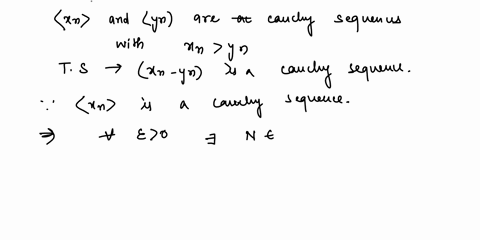 ⟨xn⟩ and ⟨yn⟩ are cauchy sequenus
with xn > yn
T.S → (xn - yn) is a cauchy sequence.
∵ ⟨xn⟩ is a cauchy sequence.
⇒ ∀ ε>0 ∃ N ∈